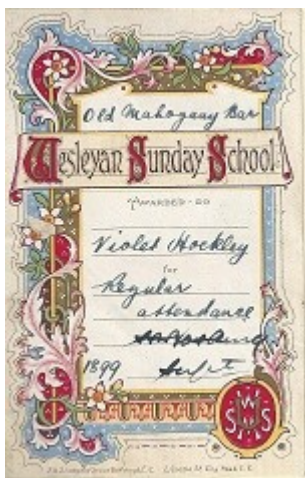 Old Mahogany Bar
Wesleyan Sunday School
AWARDED - TO
Violet Hockley
for
Regular
attendance
1899 Supt